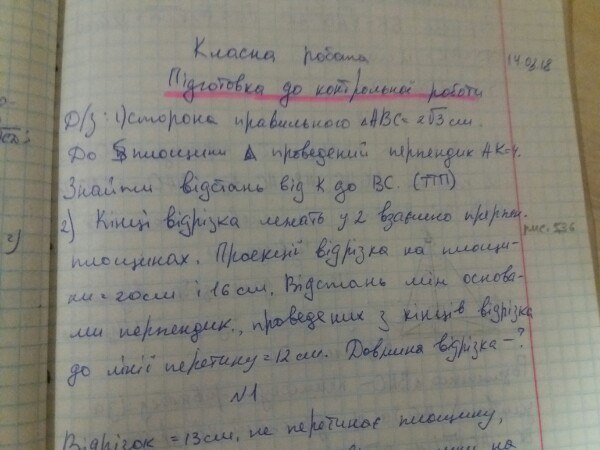 Класна робота
14.03.18
Підготовка до контрольної роботи
Д/з: 1) Сторона правильного △ABC = 2√3 см.
До площини △ проведений перпендик AK=4.
Знайти відстань від K до BC. (ТТП)
2) Кінці відрізка лежать у 2 взаємно перпен.
рис. 336
площинах. Проекції відрізка на площи-
ни = 20см і 16 см. Відстань між основа-
ми перпендик., проведених з кінців відрізка
до лінії перетину = 12 см. Довжина відрізка - ?
№1
Відрізок = 13 см, не перетинає площину,
на